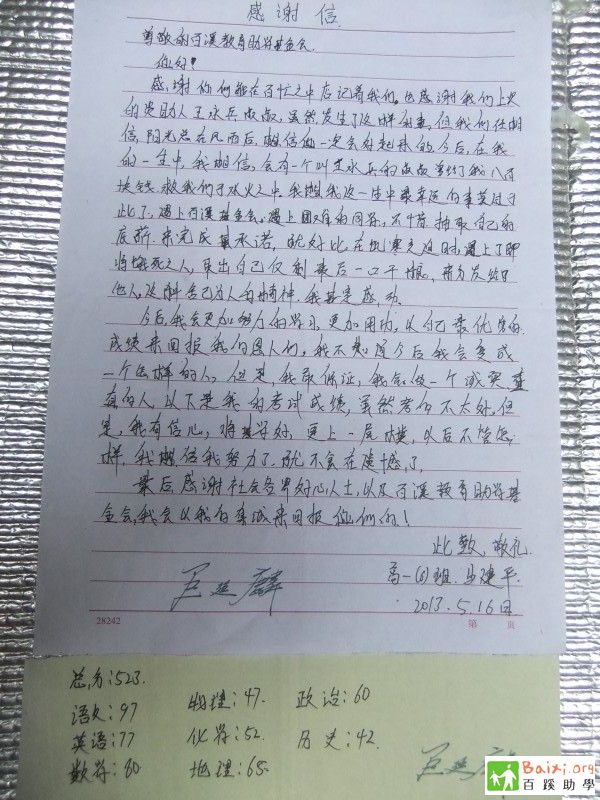 感谢信
尊敬的百溪教育助学基金会
你好!
感谢你们能在百忙之中忘记着我们。也感谢我们上次
的资助人王永兵叔叔,虽然发生了这样的事,但我们任相
信,阳光总在风雨后,相信他一定会好起来的今后,在我
的一生中,我相信,会有一个叫王永兵的叔叔曾给了我八百
块钱,救我们于水火之中。我想我这一生中最幸运的事莫过于
此了,遇上百溪基金会。遇上困难的同学,不惜抽取自己的
来完成承诺,就好比在饥寒交迫时,遇上了即
将饿死之人,拿出自己仅剩最后一口干粮,
他人,这种舍己为人的精神,我甚是感动
今后,我会更加努力的学习,更加用功,以自己最优质的
成绩来回报我的恩人们,我不知道今后我会变成
一个怎样的人,但是,我敢保证,我会做一个诚实
的人,以下是我的考试成绩,虽然考的不太好,但
是,我有信心,将学好,更上一层楼,以后不管怎
样,我相信我努力了,就不会在遗憾了,
最后感谢社会各界好心人士,以及百溪教育助学基
金会,我会以我的真诚来回报你们的!
此致,敬礼
高一(1)班.马建平.
2013.5.16日
28242 第 页
总分:523.
语文:97 物理:47. 政治:60
英语:77 化学:52. 历史:42.
数学:80 地理:65.
Baixi.org
百蹊助學